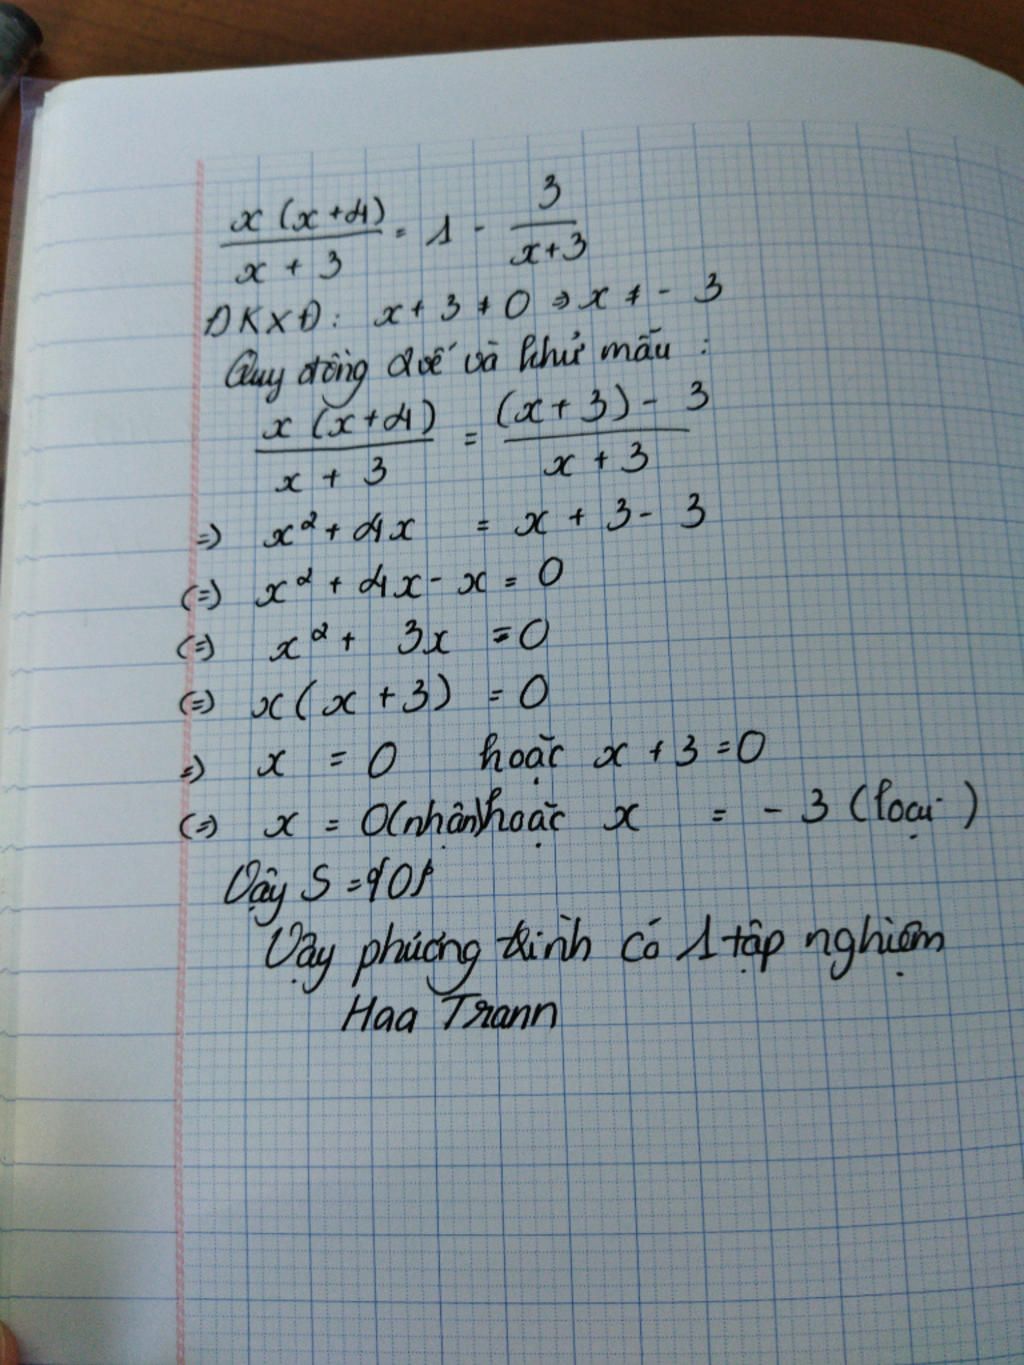 x (x+4) / x + 3 = 1 - 3 / x+3
ĐKXĐ: x + 3 ≠ 0 => x ≠ - 3
Quy đồng 2 vế và khử mẫu :
x (x+4) / x + 3 = (x + 3) - 3 / x + 3
=) x² + 4x = x + 3 - 3
(=) x² + 4x - x = 0
(=) x² + 3x = 0
(=) x ( x + 3 ) = 0
=) x = 0 hoặc x + 3 = 0
(=) x = 0 (nhận) hoặc x = - 3 (loại)
Vậy S = {0}
Vậy phương trình có 1 tập nghiệm
Haa Trann